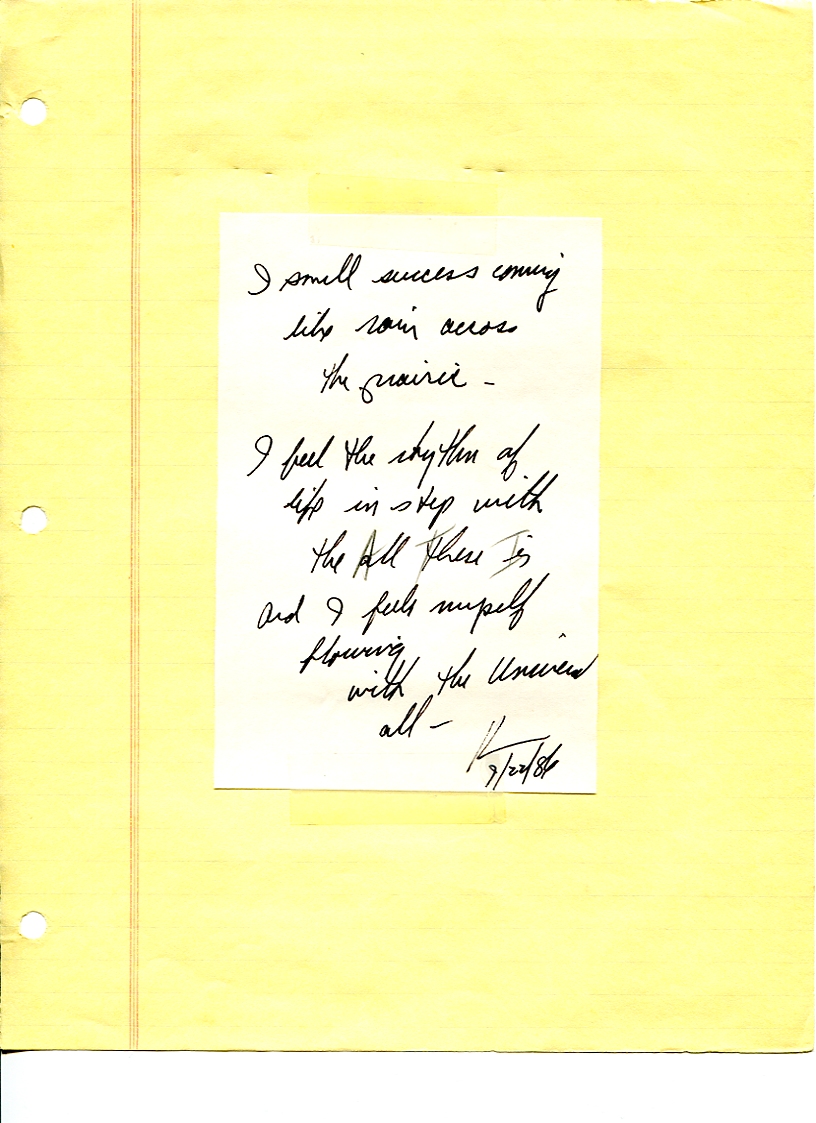 I smell success coming
like rain across
the prairie -
I feel the rhythm of
life in step with
the All There Is
and I feel myself
flowing
with the
all -
9/22/86